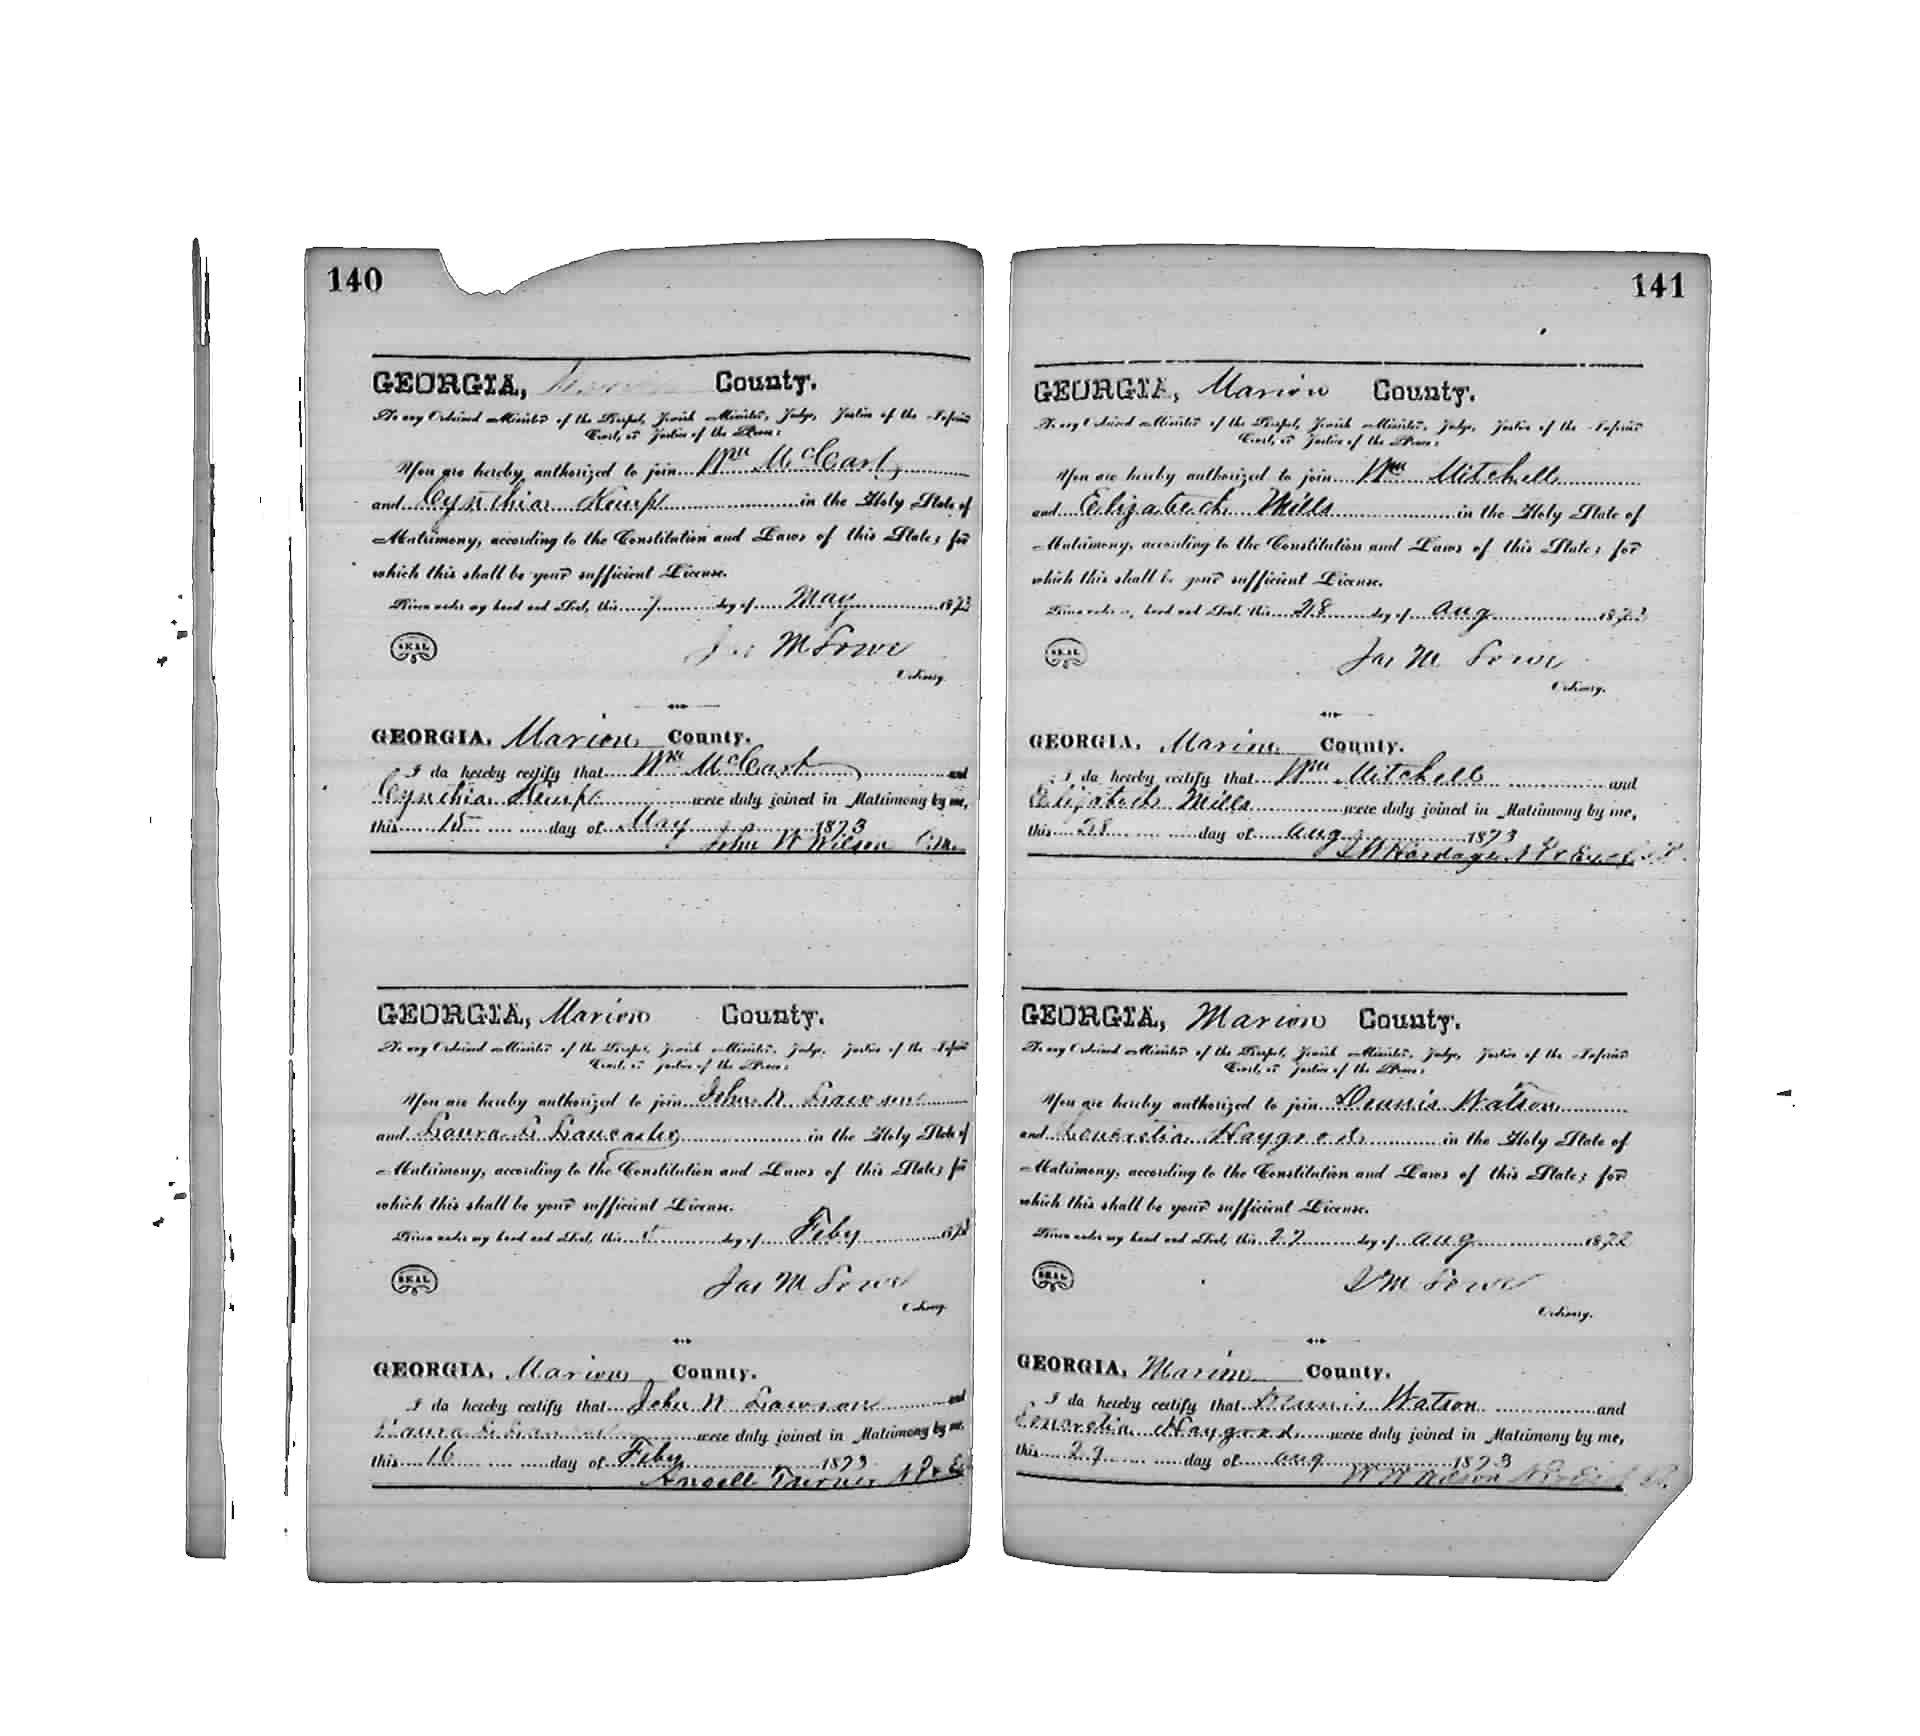 140
GEORGIA, Marion County.
To any Ordained Minister of the Gospel, Jewish Minister, Judge, Justice of the Inferior
Court, or Justice of the Peace:
You are hereby authorized to join Wm McCart
and Cynthia Kemp in the Holy State of
Matrimony, according to the Constitution and Laws of this State; for
which this shall be your sufficient License.
Given under my hand and Seal, this 7 day of May 1873
SEAL
Jas M Lowe
Ordinary.
GEORGIA, Marion County.
I do hereby certify that Wm McCart and
Cynthia Kemp were duly joined in Matrimony by me,
this 15 day of May 1873
John W Wilson
GEORGIA, Marion County.
To any Ordained Minister of the Gospel, Jewish Minister, Judge, Justice of the Inferior
Court, or Justice of the Peace:
You are hereby authorized to join John W Lawson
and Laura L Lancaster in the Holy State of
Matrimony, according to the Constitution and Laws of this State; for
which this shall be your sufficient License.
Given under my hand and Seal, this 5 day of Feby 1873
SEAL
Jas M Lowe
Ordinary.
GEORGIA, Marion County.
I do hereby certify that John W Lawson and
Laura L were duly joined in Matrimony by me,
this 16 day of Feby 1873
Ansell Turner N P & Ex
141
GEORGIA, Marion County.
To any Ordained Minister of the Gospel, Jewish Minister, Judge, Justice of the Inferior
Court, or Justice of the Peace:
You are hereby authorized to join Wm Mitchell
and Elizabeth Mills in the Holy State of
Matrimony, according to the Constitution and Laws of this State; for
which this shall be your sufficient License.
Given under my hand and Seal, this 28 day of Aug 1873
SEAL
Jas M Lowe
Ordinary.
GEORGIA, Marion County.
I do hereby certify that Wm Mitchell and
Elizabeth Mills were duly joined in Matrimony by me,
this 28 day of Aug 1873
Hardage N P & Ex J P
GEORGIA, Marion County.
To any Ordained Minister of the Gospel, Jewish Minister, Judge, Justice of the Inferior
Court, or Justice of the Peace:
You are hereby authorized to join Dennis Watson
and Loucretia Haygood in the Holy State of
Matrimony, according to the Constitution and Laws of this State; for
which this shall be your sufficient License.
Given under my hand and Seal, this 27 day of Aug 1873
SEAL
J M Lowe
Ordinary.
GEORGIA, Marion County.
I do hereby certify that Dennis Watson and
Loucretia Haygood were duly joined in Matrimony by me,
this 27 day of Aug 1873
W W Wilson N P & Ex J P.